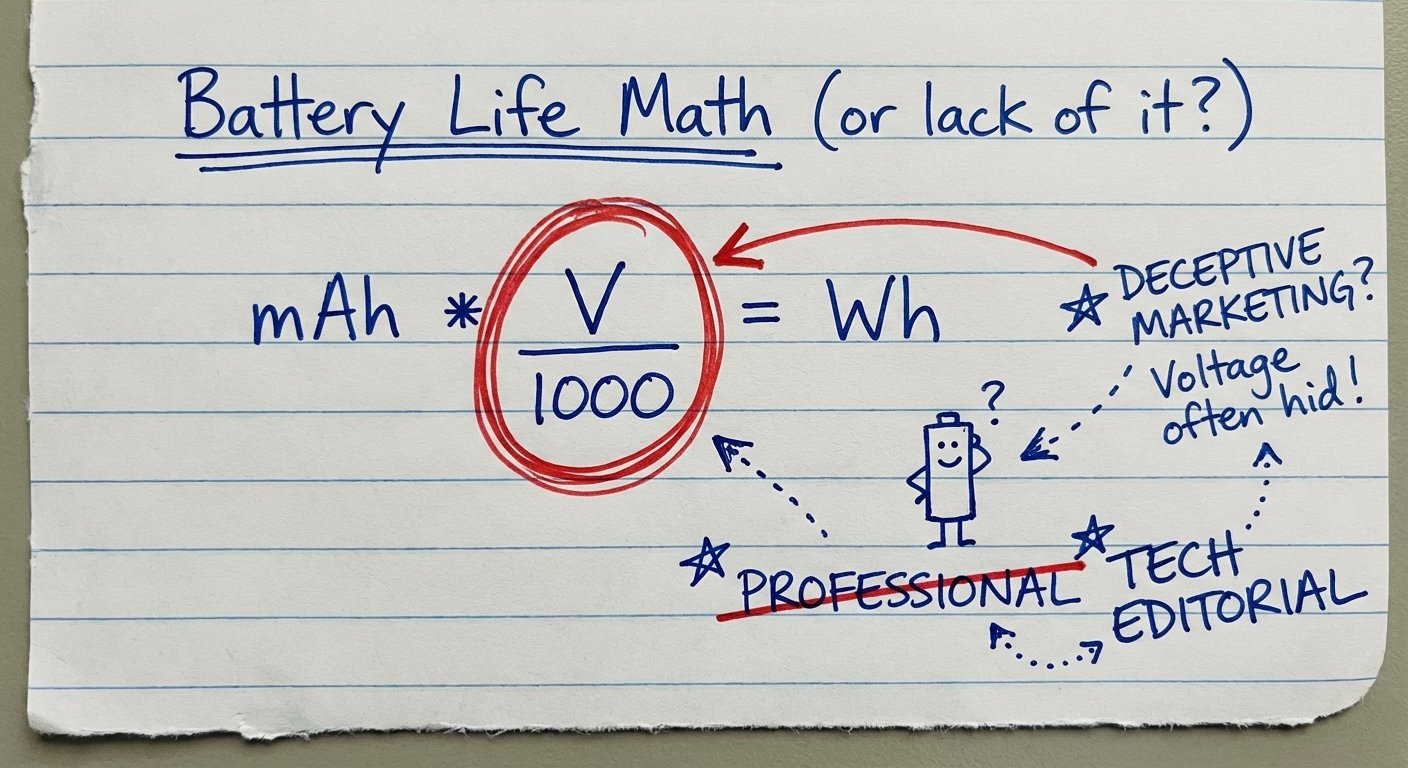 Battery Life Math (or lack of it?)
mAh * V = Wh
1000
☆ DECEPTIVE
MARKETING?
Voltage
often hid!
?
☆ PROFESSIONAL
☆ TECH
EDITORIAL